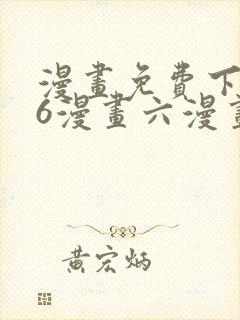 漫畫免費下
6漫畫六漫畫
黃宏炳